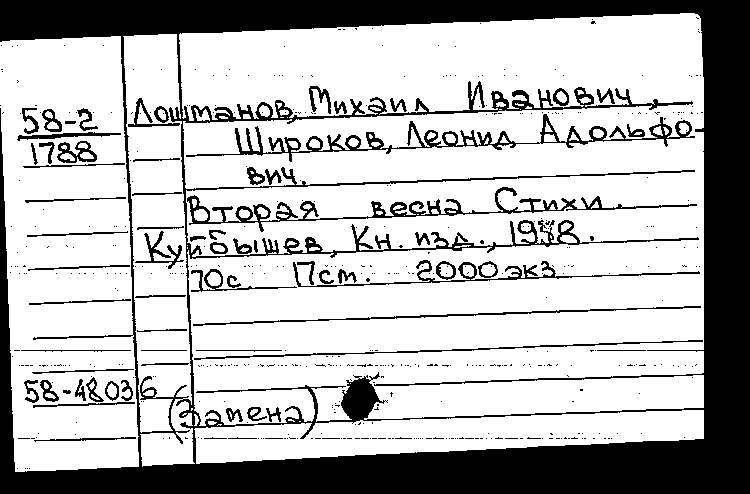 58-2
1788
Лоштанов, Михаил Иванович,
Широков, Леонид Адольфо-
вич.
Вторая весна. Стихи.
Куйбышев, Кн. изд., 1958.
70с. 17см. 2000 экз.
58-48036
(Замена)